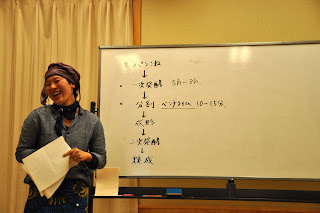 ・パンこね
↓
・一次発酵 5h〜8h
↓
・分割 ベンチタイム 10〜15分
↓
成形
↓
二次発酵
↓
焼成